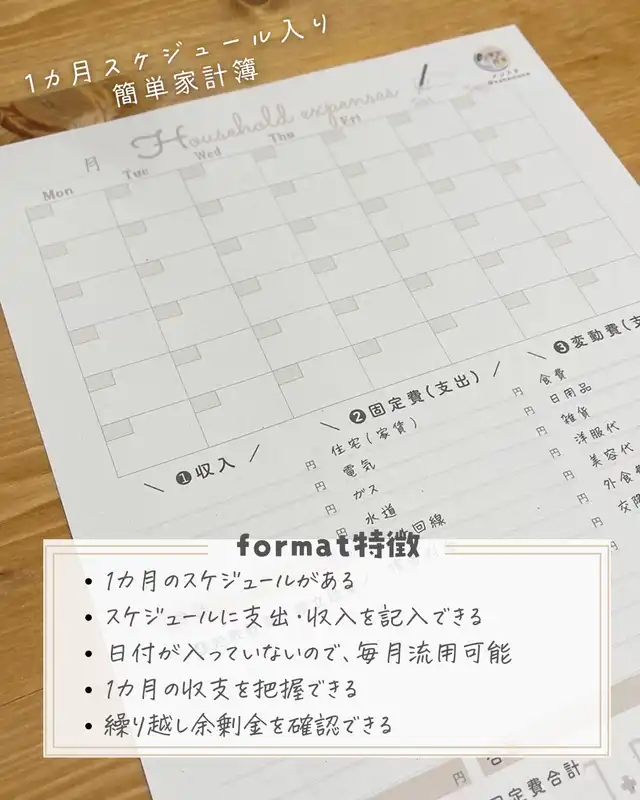 1カ月スケジュール入り
簡単家計簿
月
Household expenses
Mon
Tue
Wed
Thu
Fri
❶収入
❷固定費(支出)
❸変動費(支
円
円
円
円
住宅(家賃)
電気
ガス
水道
回線
円
円
円
円
円
食費
日用品
雑貨
洋服代
美容代
外食
交際
format特徴
• 1カ月のスケジュールがある
• スケジュールに支出・収入を記入できる
• 日付が入っていないので、毎月流用可能
• 1カ月の収支を把握できる
• 繰り越し余剰金を確認できる
円
定費合計